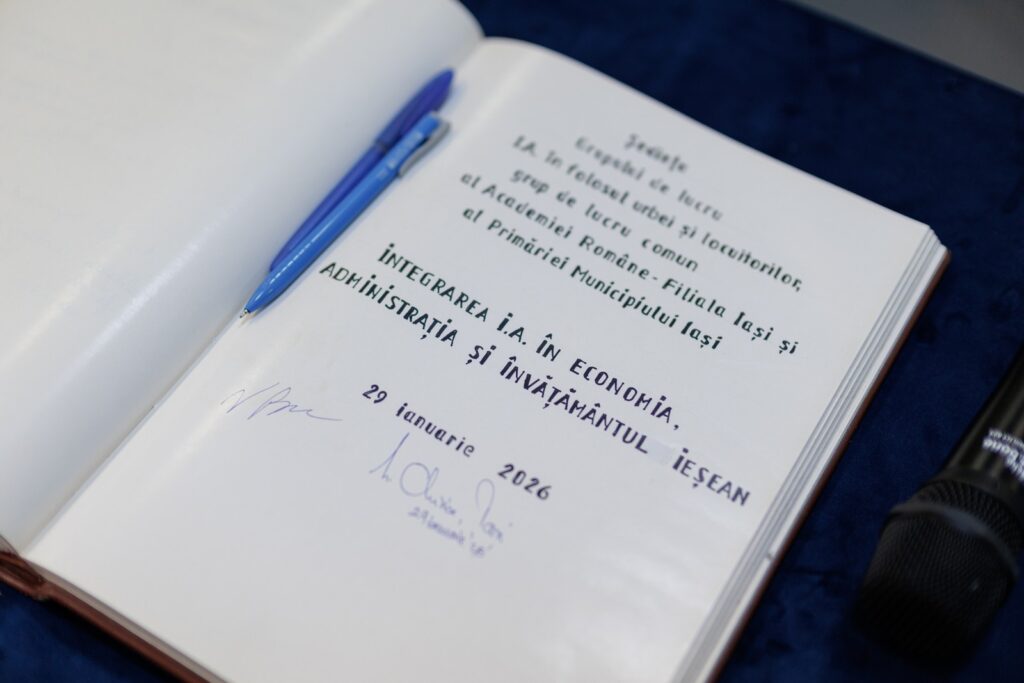 Ședința
Grupului de lucru
I.A. în folosul urbei și locuitorilor,
grup de lucru comun
al Academiei Române - Filiala Iași și
al Primăriei Municipiului Iași
INTEGRAREA I.A. ÎN ECONOMIA,
ADMINISTRAȚIA ȘI ÎNVĂȚĂMÂNTUL IEȘEAN
29 ianuarie 2026